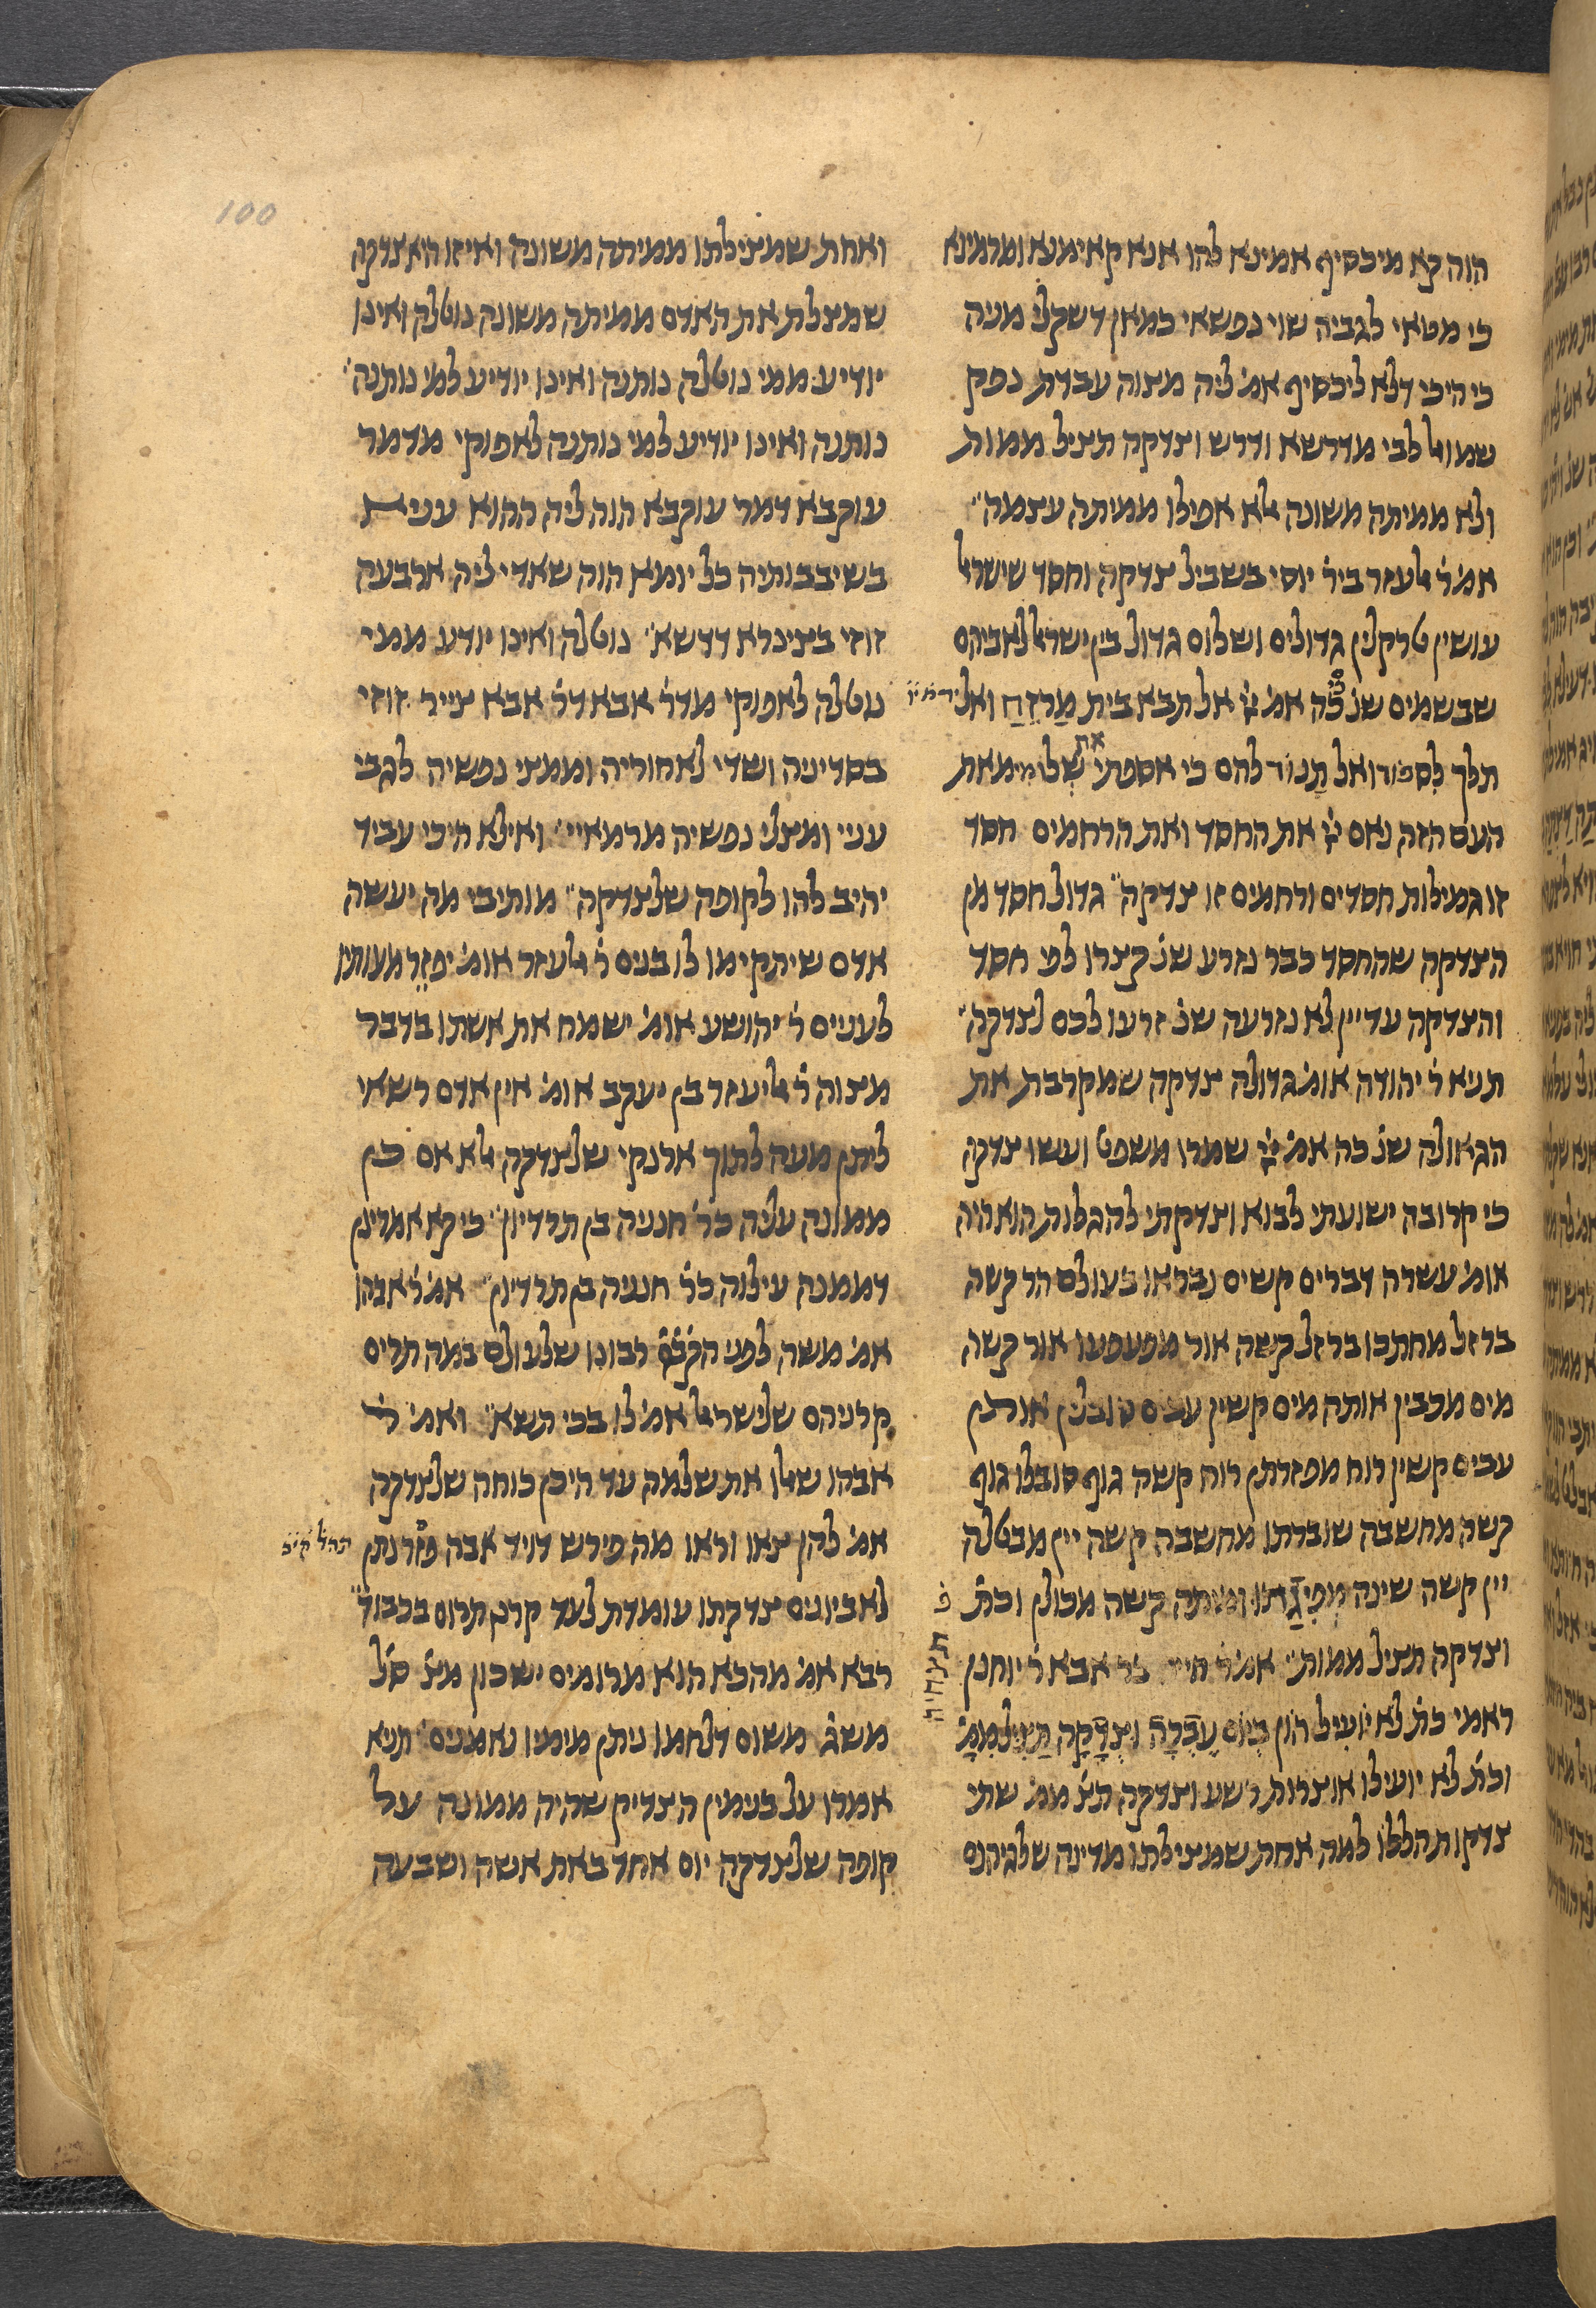 הוה קא מיכסיף אמינא להו אנא קאימנא ומרמינא
כי מטאי לגביה שוי נפשאי כמאן דשקלי מניה
כי היכי דלא ליכסיף אמ׳ ליה מצוה עבדת נפק
שמואל לבי מדרשא ודרש וצדקה תציל ממות
ולא ממיתה משונה אלא אפילו ממיתה עצמה
אמ׳ ר׳ אלעזר ביר׳ יוסי בשביל צדקה וחסד שישראל
עושין טרקלין גדולים ושלום גדול בין ישראל לאביהם
שבשמים שנ׳ כה אמ׳ ייי אל תבא בית מַרְזֵחַ ואל
תלך לספוד ואל תָנוֹד להם כי אספתי את שְלומי מאת
העם הזה נאם ייי את החסד ואת הרחמים חסד
זו גמילות חסדים ורחמים זו צדקה גדול חסד מן
הצדקה שהחסד כבר נזרע שנ׳ קצרו לפי חסד
והצדקה עדיין לא נזרעה שנ׳ זרעו לכם לצדקה
תניא ר׳ יהודה אומ׳ גדולה צדקה שמקרבת את
הגאולה שנ׳ כה אמ׳ ייי שמרו משפט ועשו צדקה
כי קרובה ישועתי לבוא וצדקתי להגלות הוא היה
אומ׳ עשרה דברים קשים נבראו בעולם הר קשה
ברזל מחתכו ברזל קשה אור מפעפעו אור קשה
מים מכבין אותה מים קשין עבים סובלין אותן
עבים קשין רוח מפזרתן רוח קשה גוף סובלו גוף
קשה מחשבה שוברתו מחשבה קשה יין מבטלה
יין קשה שינה מְפִיגַתו ומיתה קשה מכולן וכת׳
וצדקה תציל ממות אמ׳ ר׳ חייא בר אבא ר׳ יוחנן
ראמי כת׳ לא יועיל הון ביום עֶבְרָה וצְדָקָה תַצִיל מִמָ׳
וכת׳ לא יועילו אוצרות רשע וצדקה תצ׳ ממ׳ שתי
צדקות הללו למה אחת שמצילתו מדינה שלגיהנם
ואחת שמצילתו ממיתה משונה ואיזו היא צדקה
שמצלת את האדם ממיתה משונה נוטלה ואינו
יודיע ממי נוטלה נותנה ואינו יודיע למי נותנה
נותנה ואינו יודיע למי נותנה לאפוקי מדמר
עוקבא דמר עוקבא הוה ליה ההוא עניא
בשיבבותיה כל יומא הוה שאדי ליה ארבעה
זוזי בצינרא דדשא נוטלה ואינו יודע ממי
נוטלה לאפוקי מדר׳ אבא דר׳ אבא צייר זוזי
בסדיניה ושדי לאחוריה וממצי נפשיה לגבי
עניי ומצלי נפשיה מרמאיי ואילא היכי עביד
יהיב להו לקופה שלצדקה מותיבי מה יעשה
אדם שיתקיימו לו בנים ר׳ אלעזר אומ׳ יפזר מעותיו
לעניים ר׳ יהושע אומ׳ ישמח את אשתו בדבר
מצוה ר׳ אליעזר בן יעקב אומ׳ אין אדם רשאי
ליתן מעה לתוך ארנקי שלצדקה אלא אם כן
ממונה עליה כר׳ חנניה בן תרדיון כי קא אמרינן
דממנה עילוה כר׳ חנניה בן תרדיון אמ׳ ר׳ אבהו
אמ׳ משה לפני הקב״ה רבונו שלעולם במה תרים
קרניהם שלישראל אמ׳ לו בכי תשא ואמ׳ ר׳
אבהו שאלו את שלמה עד היכן כוחה שלצדקה
אמ׳ להן צאו וראו מה פירש דויד אבה פזר נתן
לאביונים צדקתו עומדת לעד קרנו תרום בכבוד
רבא אמ׳ מהכא הוא מרומים ישכון מצ׳ סל׳
משג׳ משום דלחמו ניתן מימיו נאמנים תניא
אמרו על בנימין הצדיק שהיה ממונה על
קופה שלצדקה יום אחד באת אשה ושבעה
100